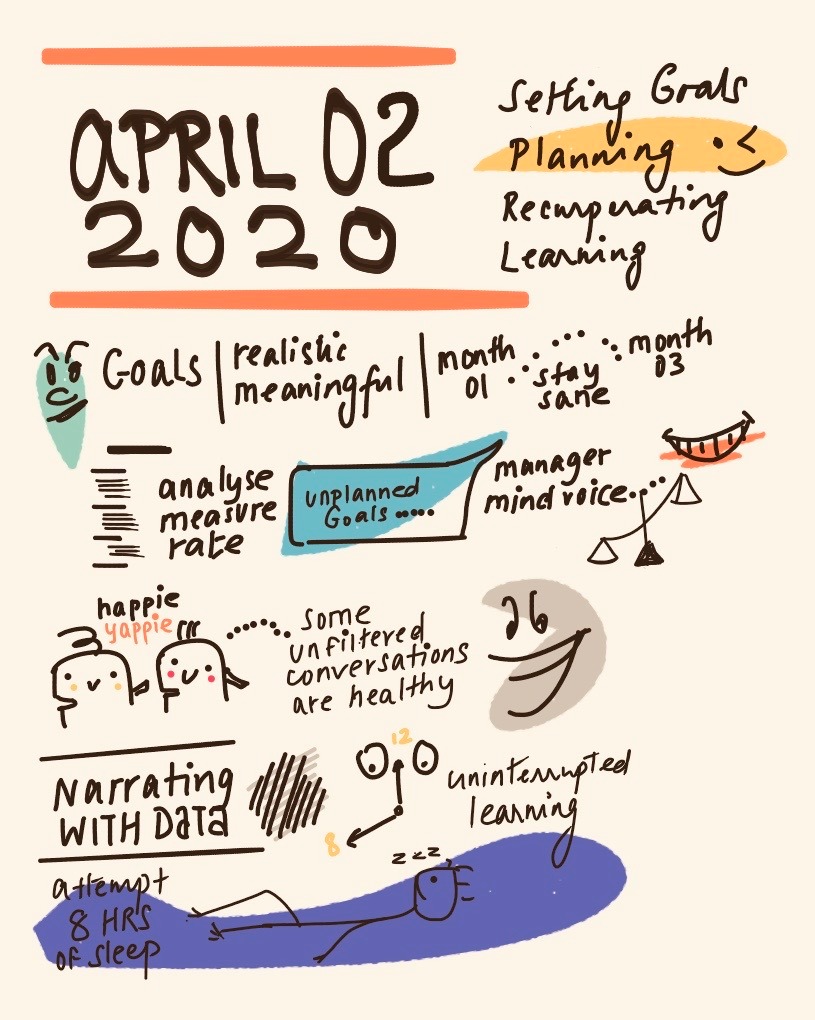 APRIL 02
2020
Setting Goals
Planning
Recurperating
Learning
Goals
realistic
meaningful
month
01
stay
sane
month
03
analyse
measure
rate
unplanned
Goals .....
manager
mind voice.....
happie
yappie
some
unfiltered
conversations
are healthy
Narrating
WITH Data
12
8
uninterrupted
learning
zzz
attempt
8 HRS
of sleep